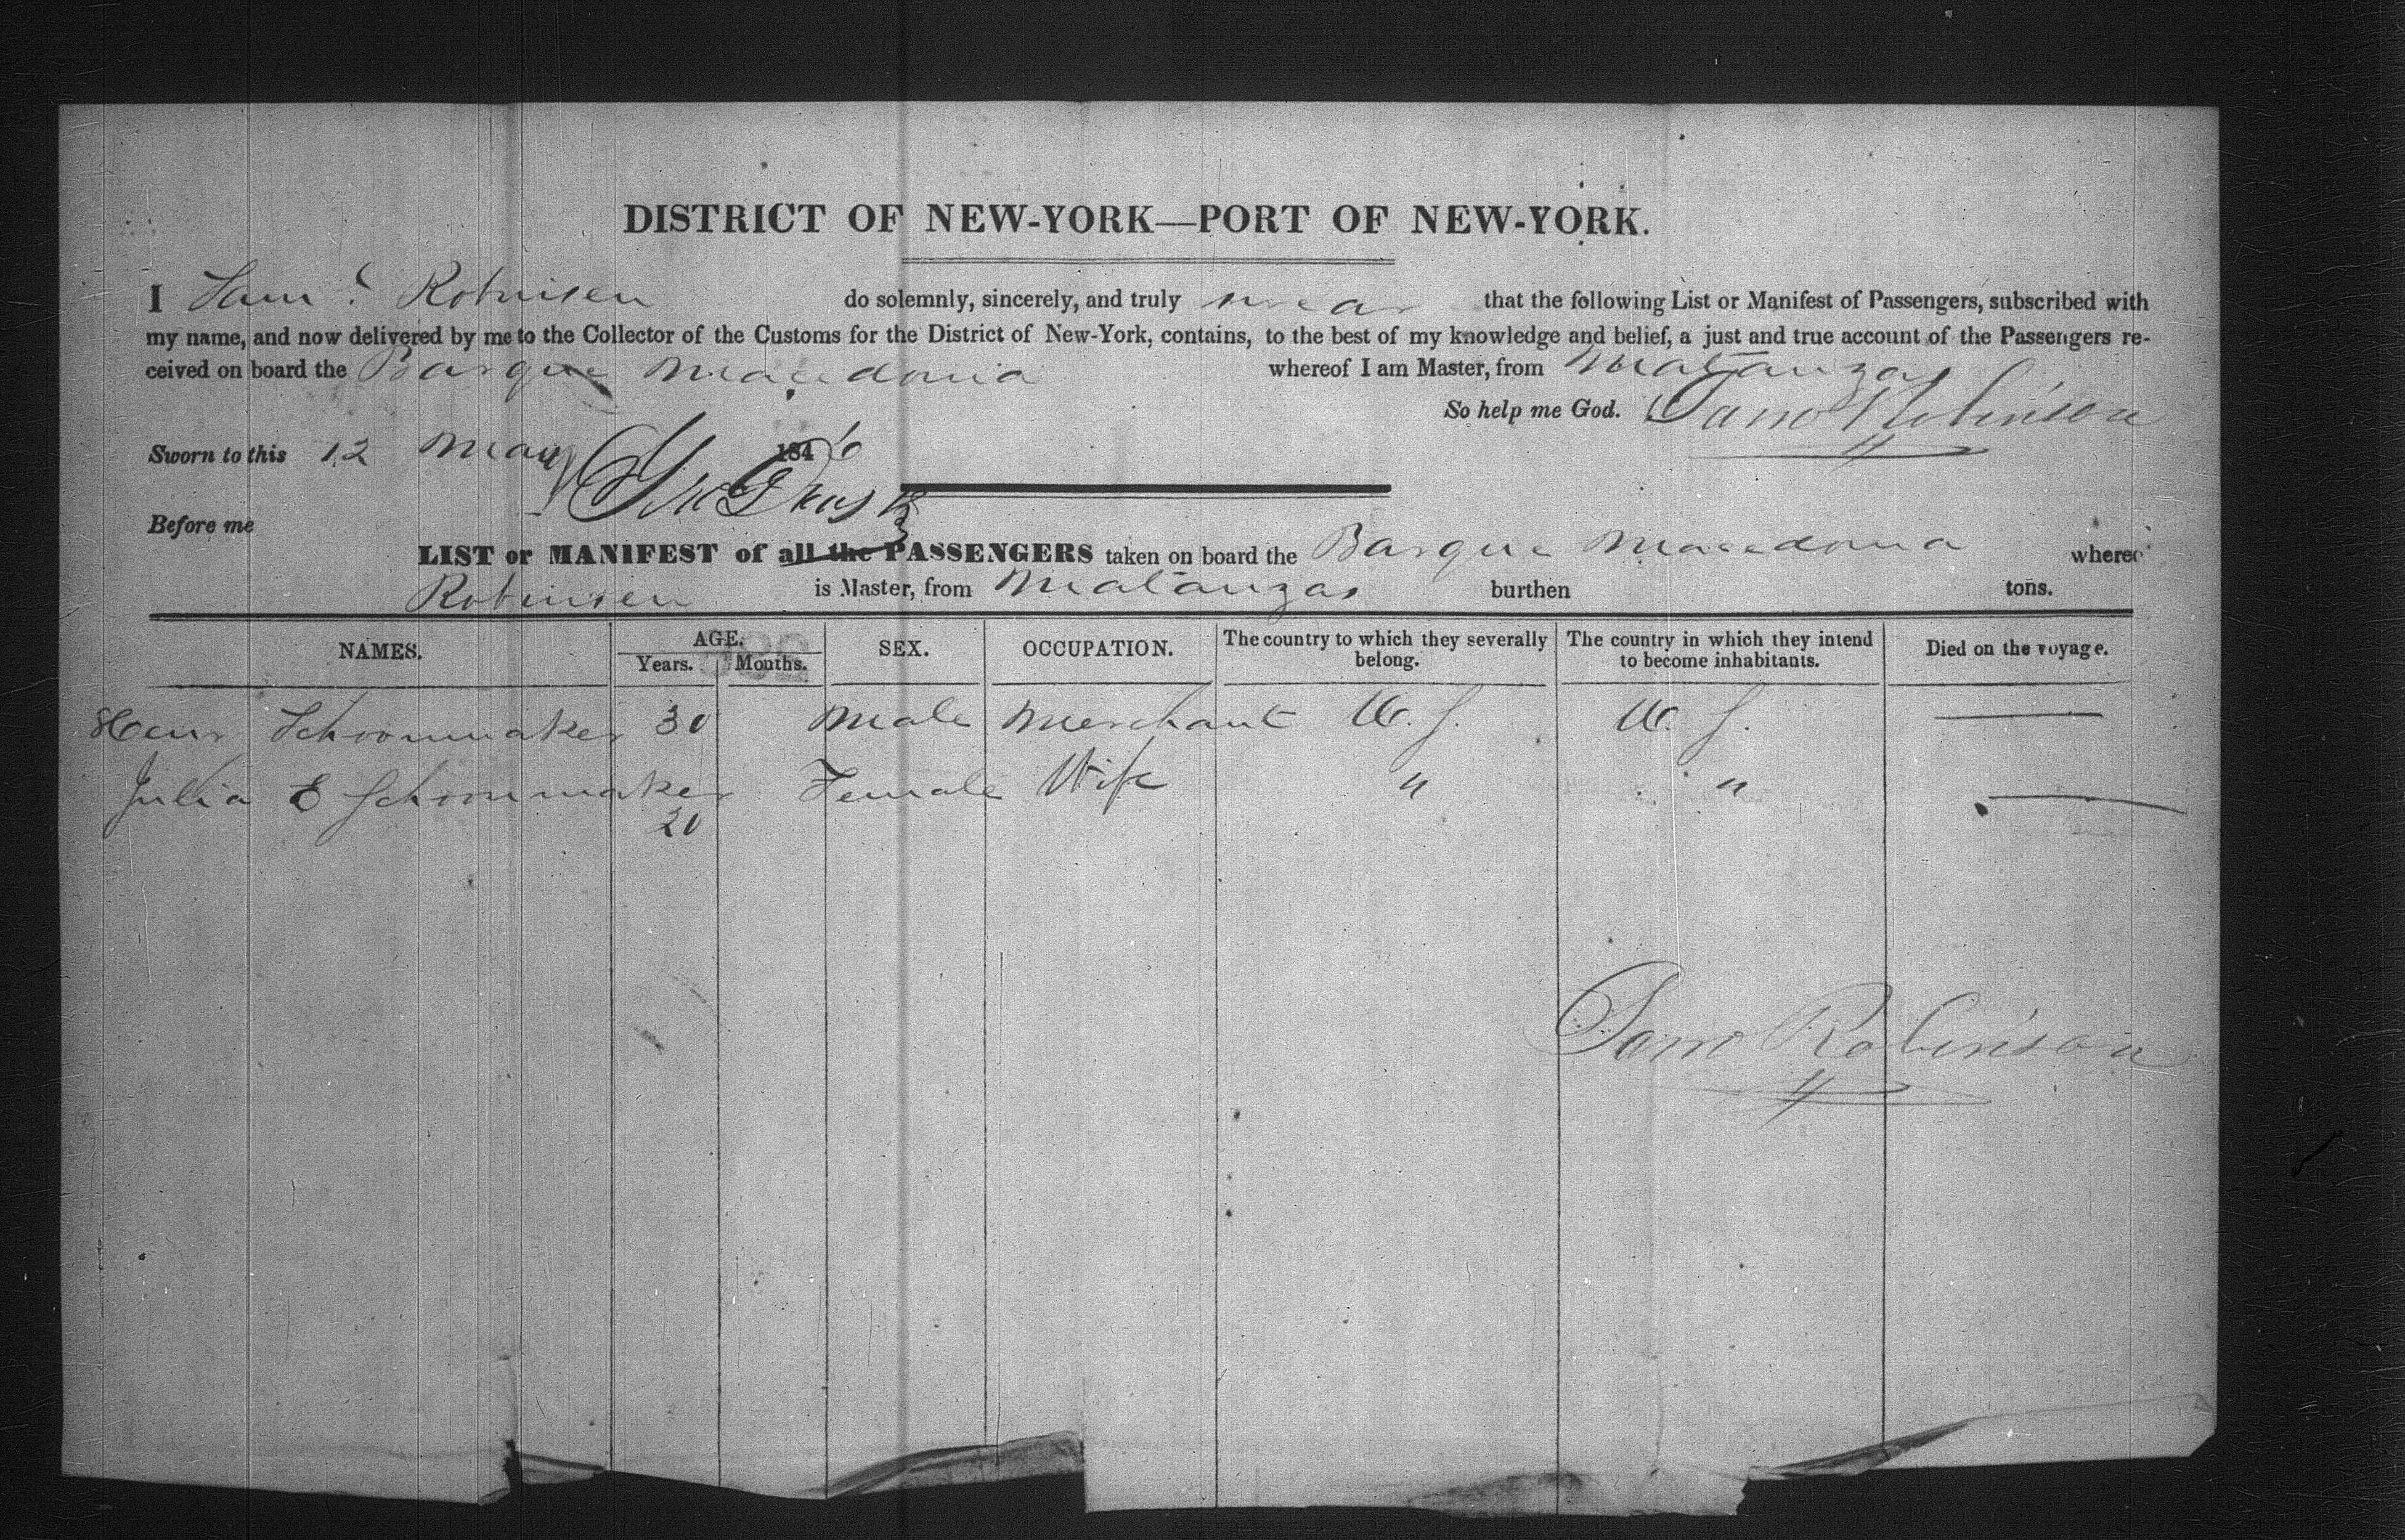 DISTRICT OF NEW-YORK—PORT OF NEW-YORK.
I Saml Robinson do solemnly, sincerely, and truly swear that the following List or Manifest of Passengers, subscribed with
my name, and now delivered by me to the Collector of the Customs for the District of New-York, contains, to the best of my knowledge and belief, a just and true account of the Passengers re-
ceived on board the Barque Macedonia whereof I am Master, from Matanzas
So help me God. Saml Robinson
Sworn to this 12 May 1846
Before me
LIST or MANIFEST of all the PASSENGERS taken on board the Barque Macedonia whereo
Robinson is Master, from Matanzas burthen tons.
NAMES. AGE. Years. Months. SEX. OCCUPATION. The country to which they severally belong. The country in which they intend to become inhabitants. Died on the voyage.
Schoonmaker 30 Male Merchant U. S. U. S. —
Julia E Schoonmaker 20 Female Wife " " —
Saml Robinson